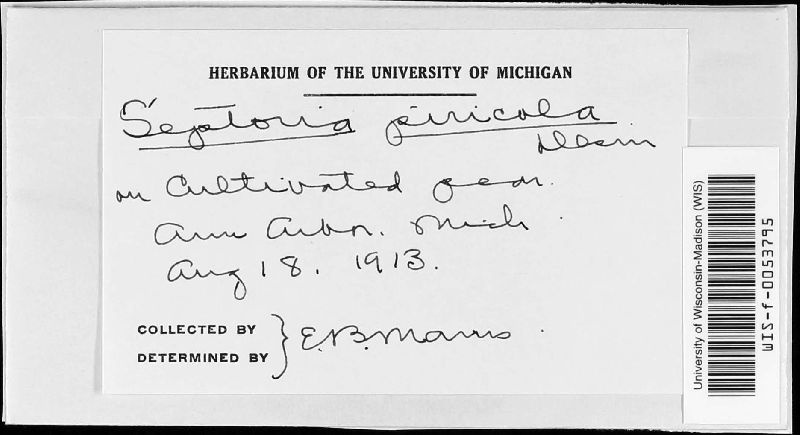 HERBARIUM OF THE UNIVERSITY OF MICHIGAN
Septoria piricola
Desm
on Cultivated pear.
Ann Arbor. Mich.
Aug 18. 1913.
COLLECTED BY
DETERMINED BY } E.B. Mains
University of Wisconsin-Madison (WIS)
WIS-f-0053795